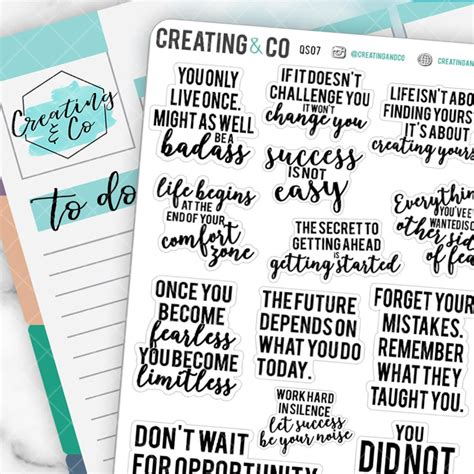 CREATING & CO QS07 @CREATINGANDCO CREATINGAND
Creating
& Co
to do
YOU ONLY
LIVE ONCE.
MIGHT AS WELL
BE A
badass
IF IT DOESN'T
CHALLENGE YOU
IT WON'T
change you
LIFE ISN'T ABO
FINDING YOURS
IT'S ABOUT
creating yours
life begins
AT THE
END OF YOUR
comfort
zone
success
IS NOT
easy
Everythin
YOU'VE E
WANTED IS O
other sid
of fea
THE SECRET TO
GETTING AHEAD
IS
getting started
ONCE YOU
BECOME
fearless
YOU BECOME
limitless
THE FUTURE
DEPENDS ON
WHAT YOU DO
TODAY.
FORGET YOUR
MISTAKES.
REMEMBER
WHAT THEY
TAUGHT YOU.
WORK HARD
IN SILENCE
let success
be your noise
DON'T WAIT
FOR OPPORTUNITY
YOU
DID NOT